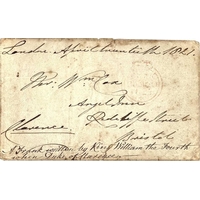 London April twentieth 1821.
Mr. Wm Cox
Angel Inn
Redcliffe Street
Clarence Bristol
A Frank written by King William the Fourth
when Duke of Clarence